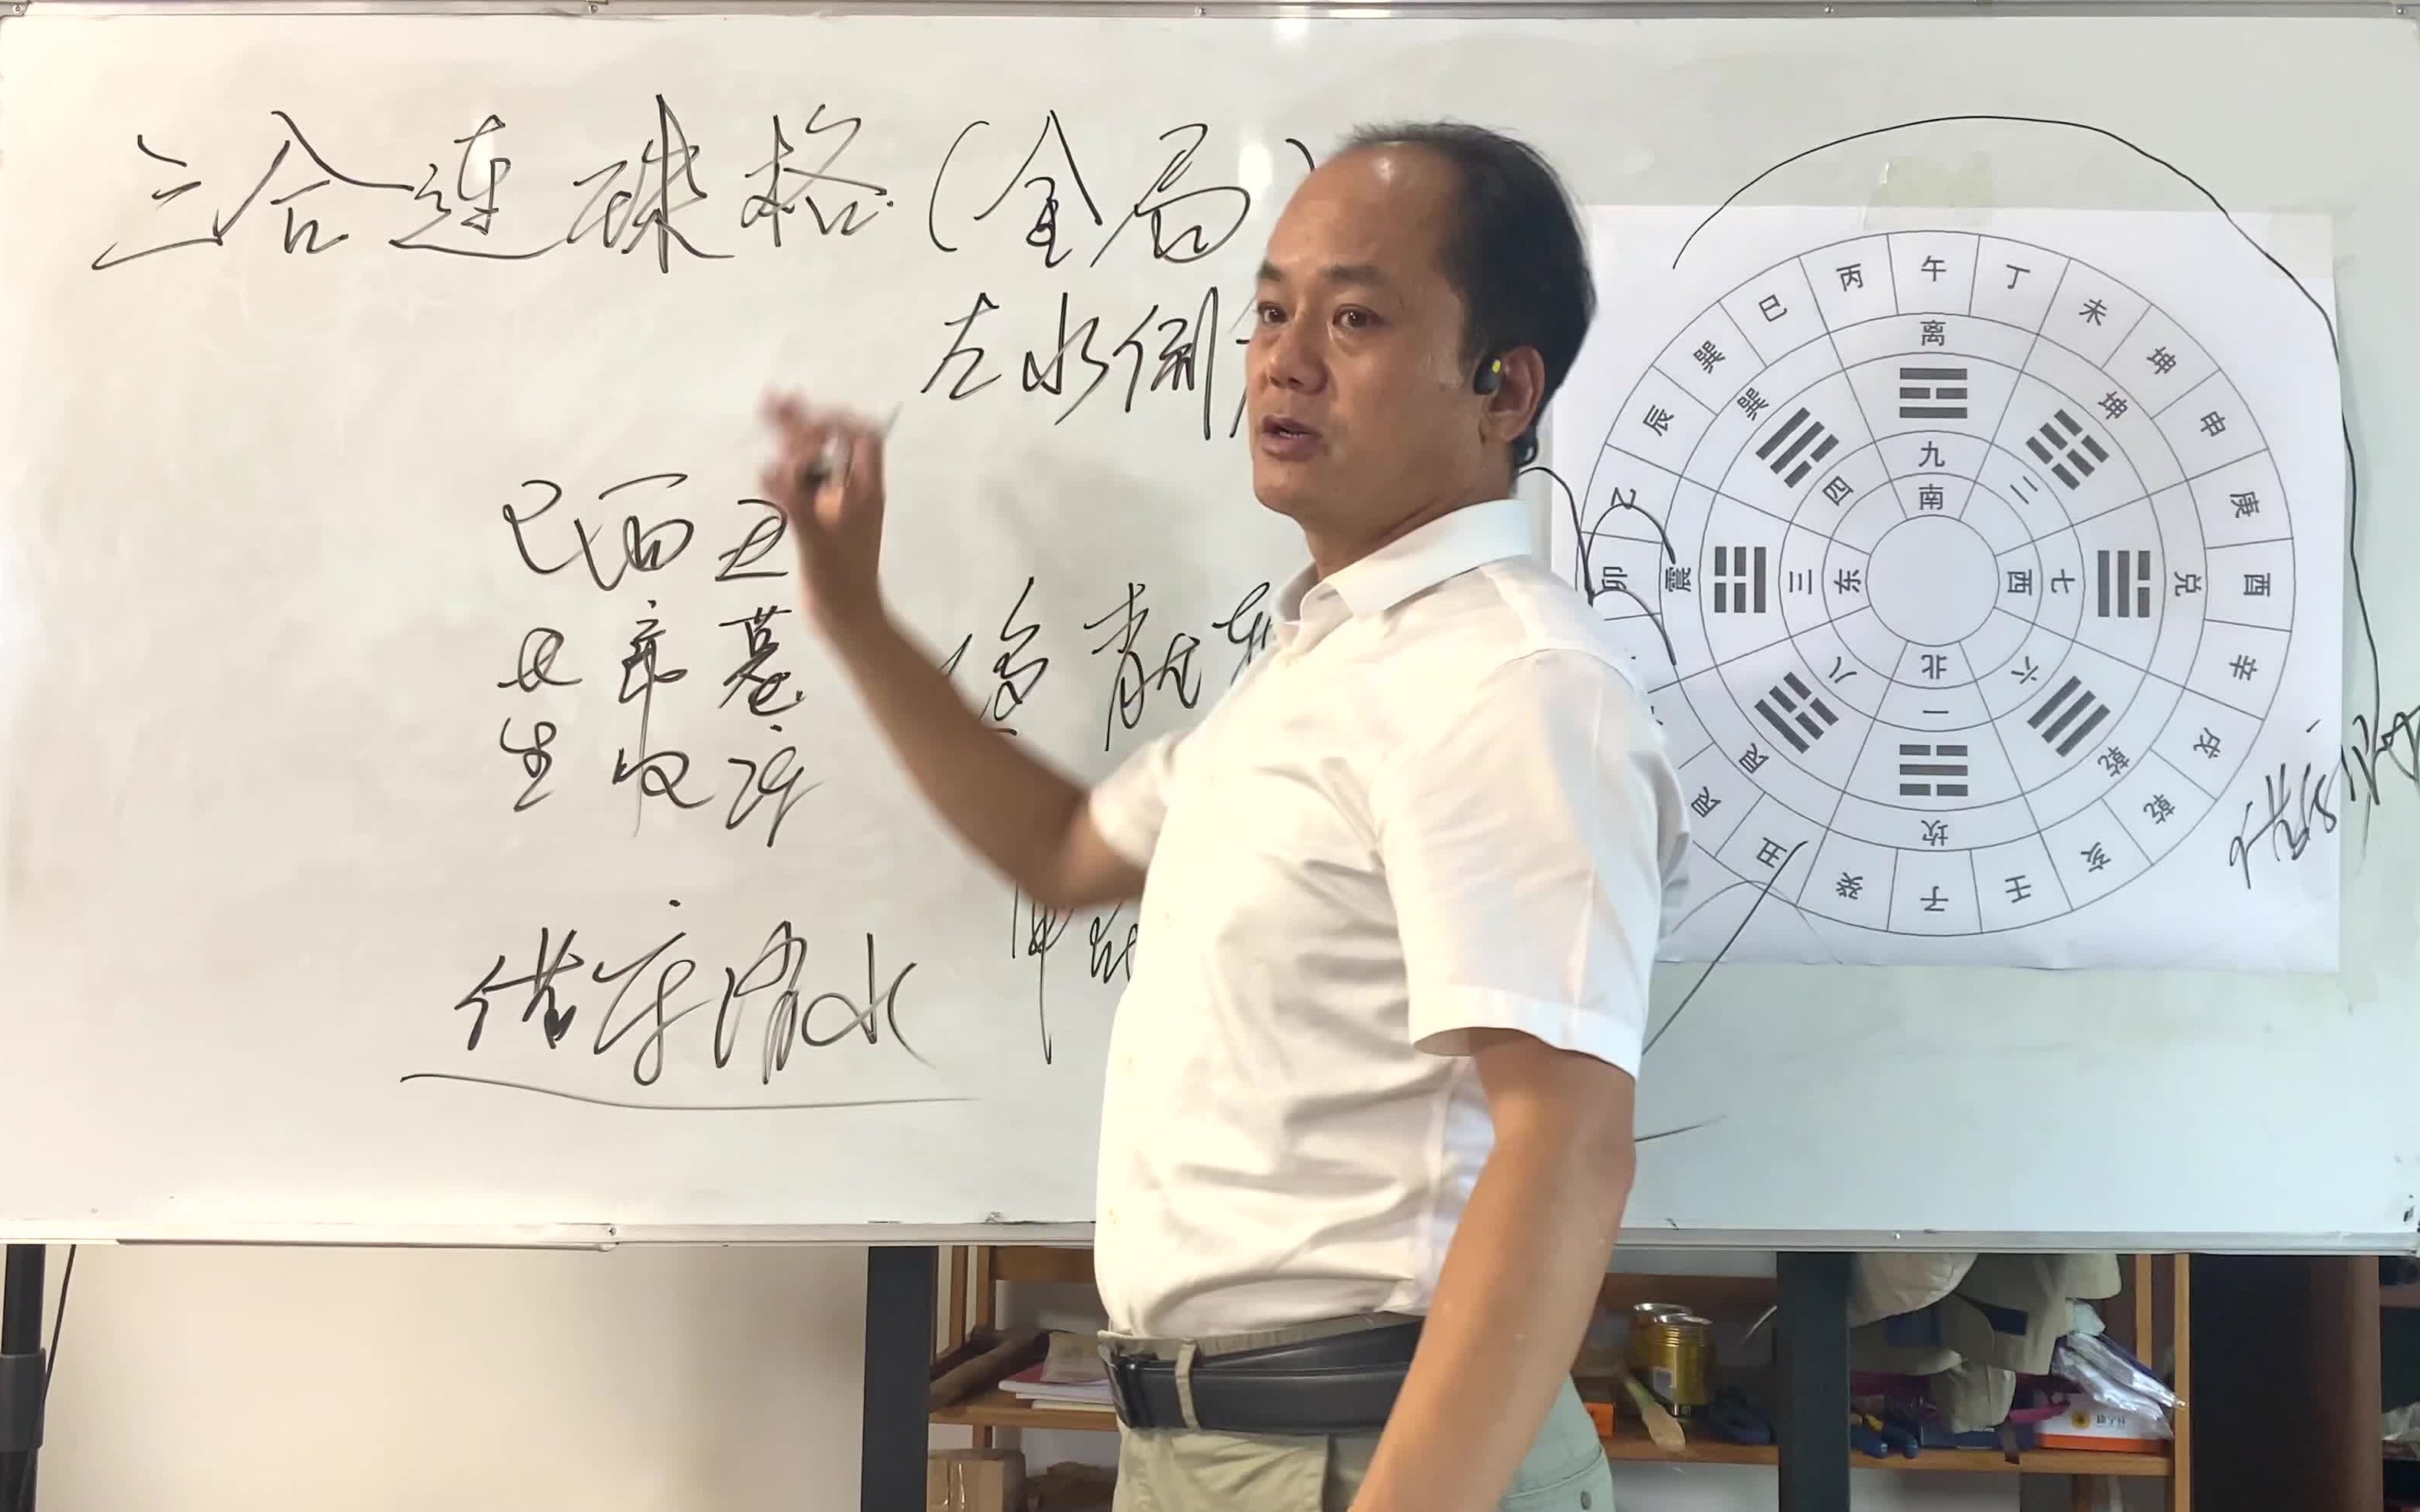 三合连珠格(金局)
左水倒
巳酉丑
长帝墓
生旺库
借库消水
午
丁
未
坤
申
庚
酉
辛
戌
乾
亥
壬
子
癸
丑
艮
卯
乙
辰
巽
巳
丙
离
坤
兑
乾
坎
艮
震
巽
九
二
七
六
一
八
三
四
南
西
北
东